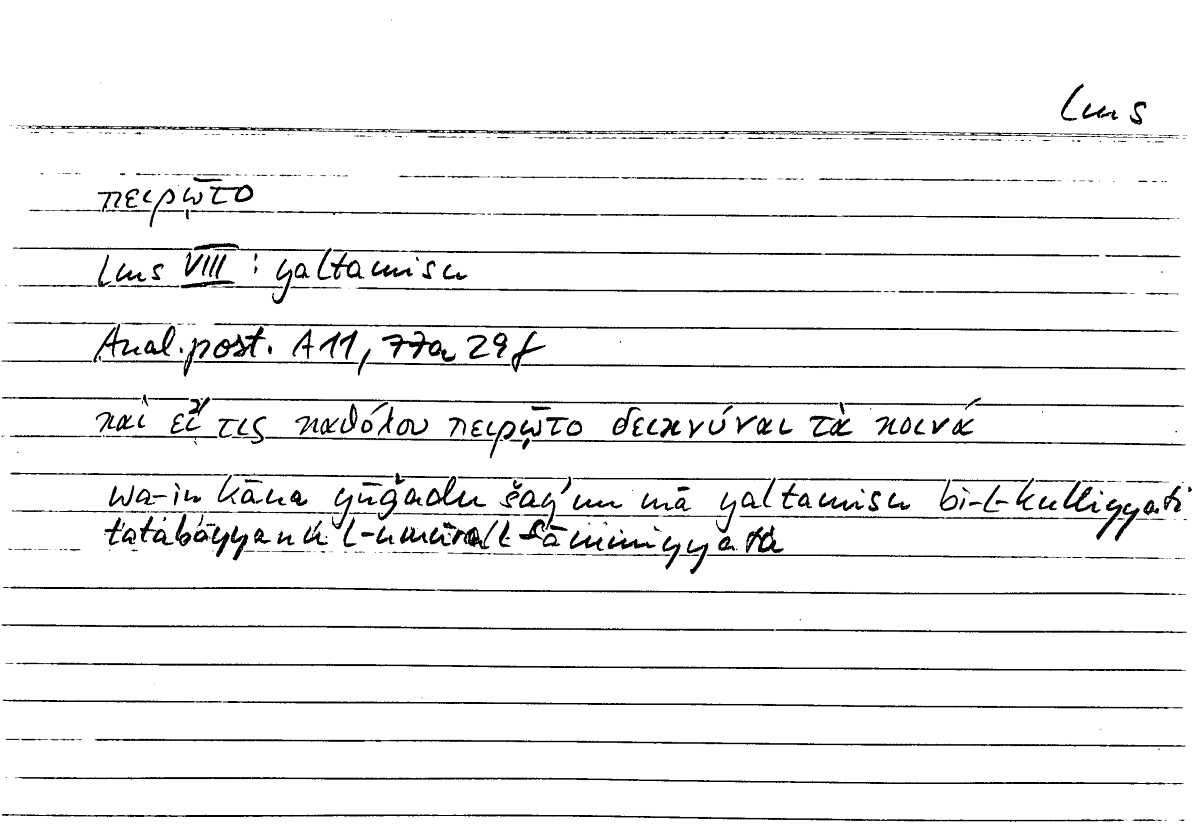 lms
πειρῷτο
lms VIII : yaltamisu
Anal.post. A 11, 77a 29f
καὶ εἴ τις καθόλου πειρῷτο δεικνύναι τὰ κοινά
wa-in kāna yūǧadu šay'un mā yaltamisu bi-l-kulliyyati
l-umūra l-ʿāmmiyyata